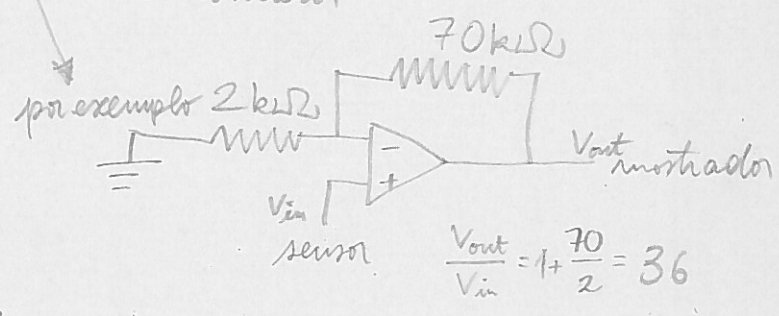 70kΩ
por exemplo 2kΩ
−
+
Vout mostrador
Vin
sensor
Vout/Vin = 1+70/2 = 36